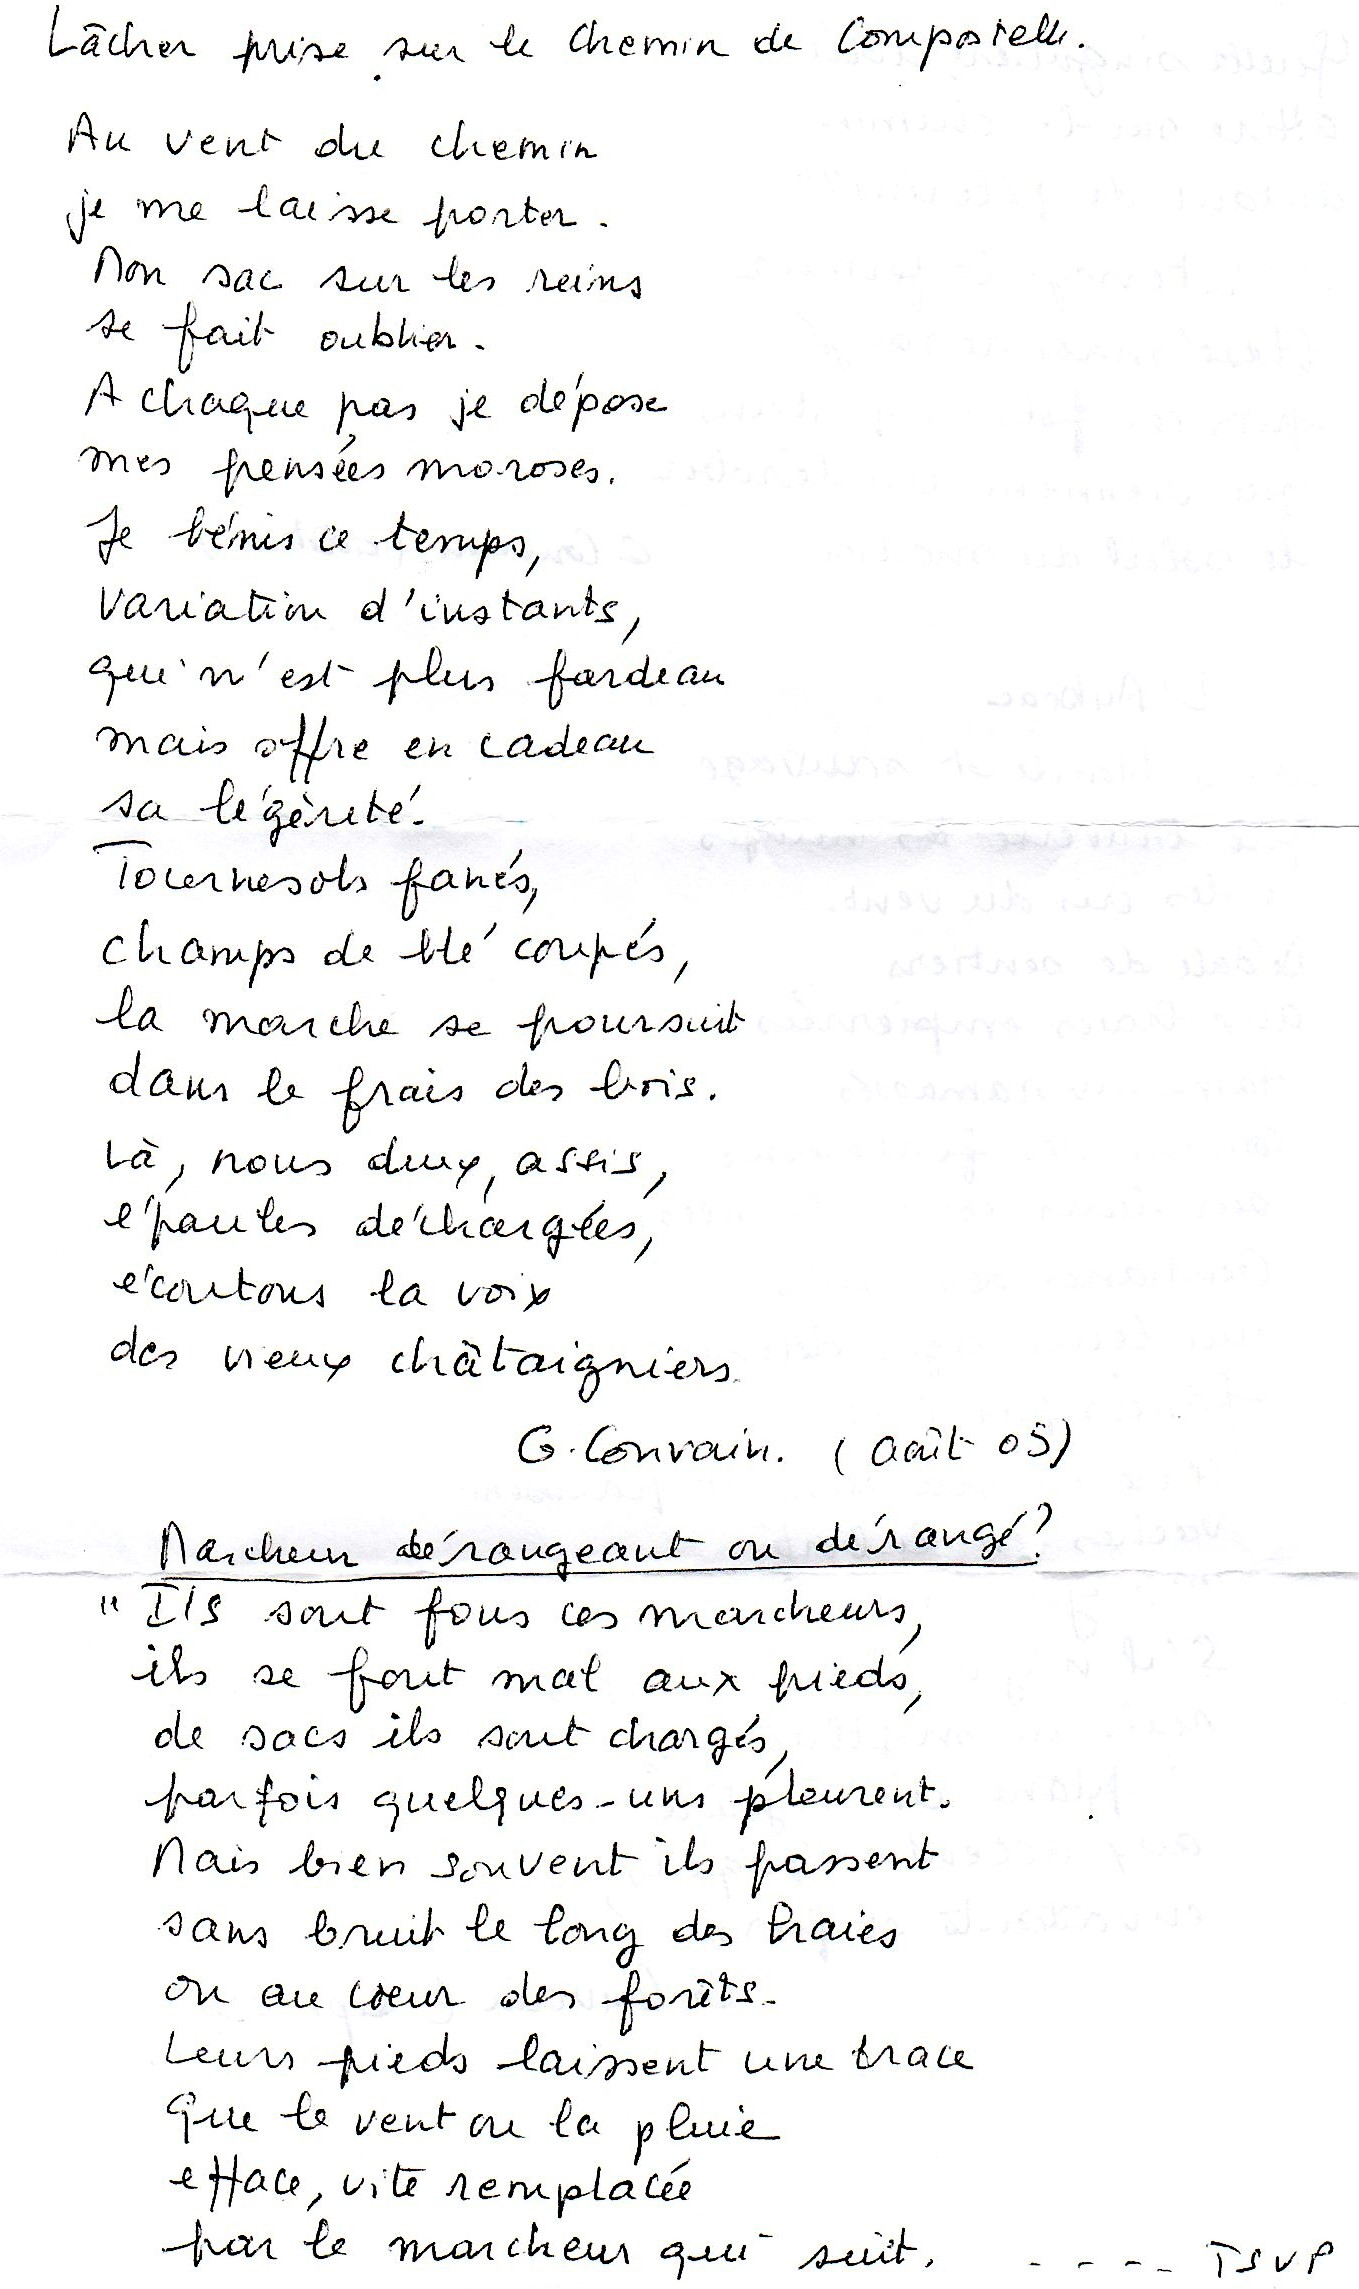 Lâcher prise sur le Chemin de Compostelle.
Au vent du chemin
je me laisse porter.
Mon sac sur les reins
se fait oublier.
A chaque pas je dépose
mes pensées moroses.
Je bénis ce temps,
variation d'instants,
qui n'est plus fardeau
mais offre en cadeau
sa légèreté.
Tournesols fanés,
champs de blé coupés,
la marche se poursuit
dans le frais des bois.
Là, nous deux, assis,
épaules déchargées,
écoutons la voix
des vieux châtaigniers.
G. Convain. (août 05)
Marcheur dérangeant ou dérangé?
" Ils sont fous ces marcheurs,
ils se font mal aux pieds,
de sacs ils sont chargés,
parfois quelques-uns pleurent.
Mais bien souvent ils passent
sans bruit le long des haies
ou au coeur des forêts.
Leurs pieds laissent une trace
Que le vent ou la pluie
efface, vite remplacée
par le marcheur qui suit. ---- TSVP